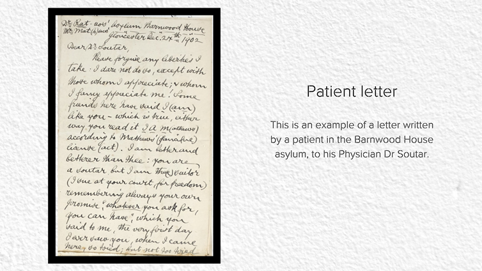 Gloucester Dec. 24th 1902
Dear Dr Soutar,
Please forgive any liberties I
take - I dare not do so, except with
those whom I appreciate, & whom
I fancy appreciate me! Some
friends here have said I (am)
like you - which is true, either
way you read it
according to Matthews
I am better and
betterer than thee: you are
a soutar but I am
(I sue at your court, for freedom)
remembering always your own
promise, "whatever you ask for,
you can have", which you
said to me, the very first day
I ever saw you, when I came
here, so
Patient letter
This is an example of a letter written
by a patient in the Barnwood House
asylum, to his Physician Dr Soutar.